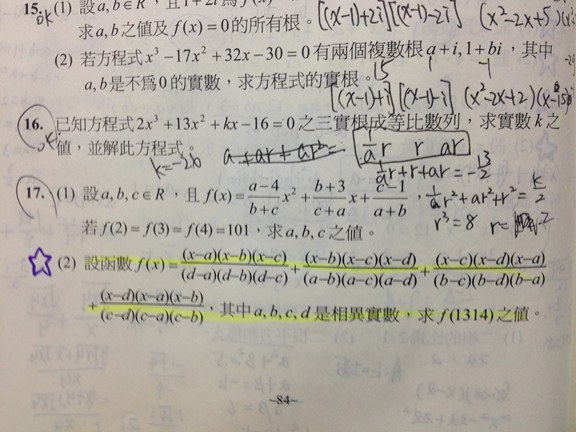 15. (1) 設 a, b ∈ R，且 1+2i 為 f(x)
ok
求 a, b 之值及 f(x) = 0 的所有根。 [(x-1)+2i][(x-1)-2i] (x²-2x+5)
(2) 若方程式 x³ - 17x² + 32x - 30 = 0 有兩個複數根 a+i, 1+bi，其中
a, b 是不為 0 的實數，求方程式的實根。 15 1 -1
[(x-1)+i][(x-1)-i] (x²-2x+2)(x-15)
16. 已知方程式 2x³ + 13x² + kx - 16 = 0 之三實根成等比數列，求實數 k 之
ok
值，並解此方程式。 k=-26 a+ar+ar²= 1/a r r ar
1/a r + r + ar = -13/2
17. (1) 設 a, b, c ∈ R，且 f(x) = (a-4)/(b+c) x² + (b+3)/(c+a) x + (x-1)/(a+b)，
1/a r² + ar² + r² = k/2
若 f(2) = f(3) = f(4) = 101，求 a, b, c 之值。 r³=8 r= -2
(2) 設函數 f(x) = (x-a)(x-b)(x-c)/(d-a)(d-b)(d-c) + (x-b)(x-c)(x-d)/(a-b)(a-c)(a-d) + (x-c)(x-d)(x-a)/(b-c)(b-d)(b-a)
+ (x-d)(x-a)(x-b)/(c-d)(c-a)(c-b)，其中 a, b, c, d 是相異實數，求 f(1314) 之值。
~84~